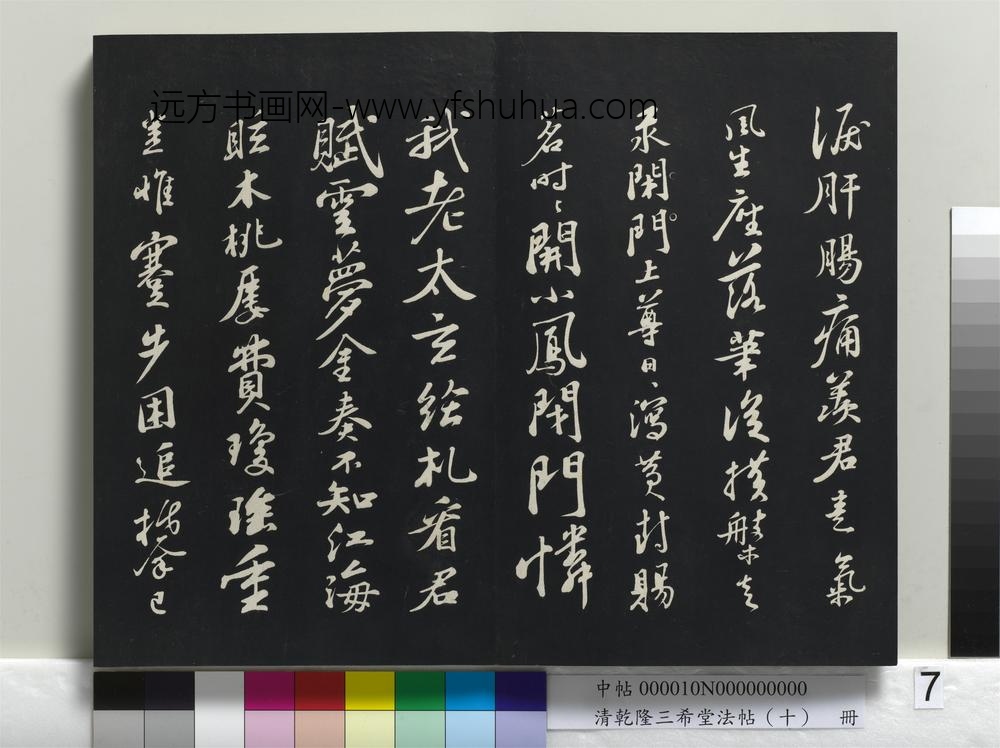 远方书画网-www.yfshuhua.com
淚肝腸痛羨君意氣
風生座落筆從橫槃走
汞閑門上尊日〻瀉黃封賜
茗時〻開小鳳閉門憐
我老太玄給札看君
賦雲夢金奏不知江海
眩木桃屢費瓊瑤重
豈惟蹇步困追攀已
中帖 000010N000000000
清乾隆三希堂法帖（十） 冊
7